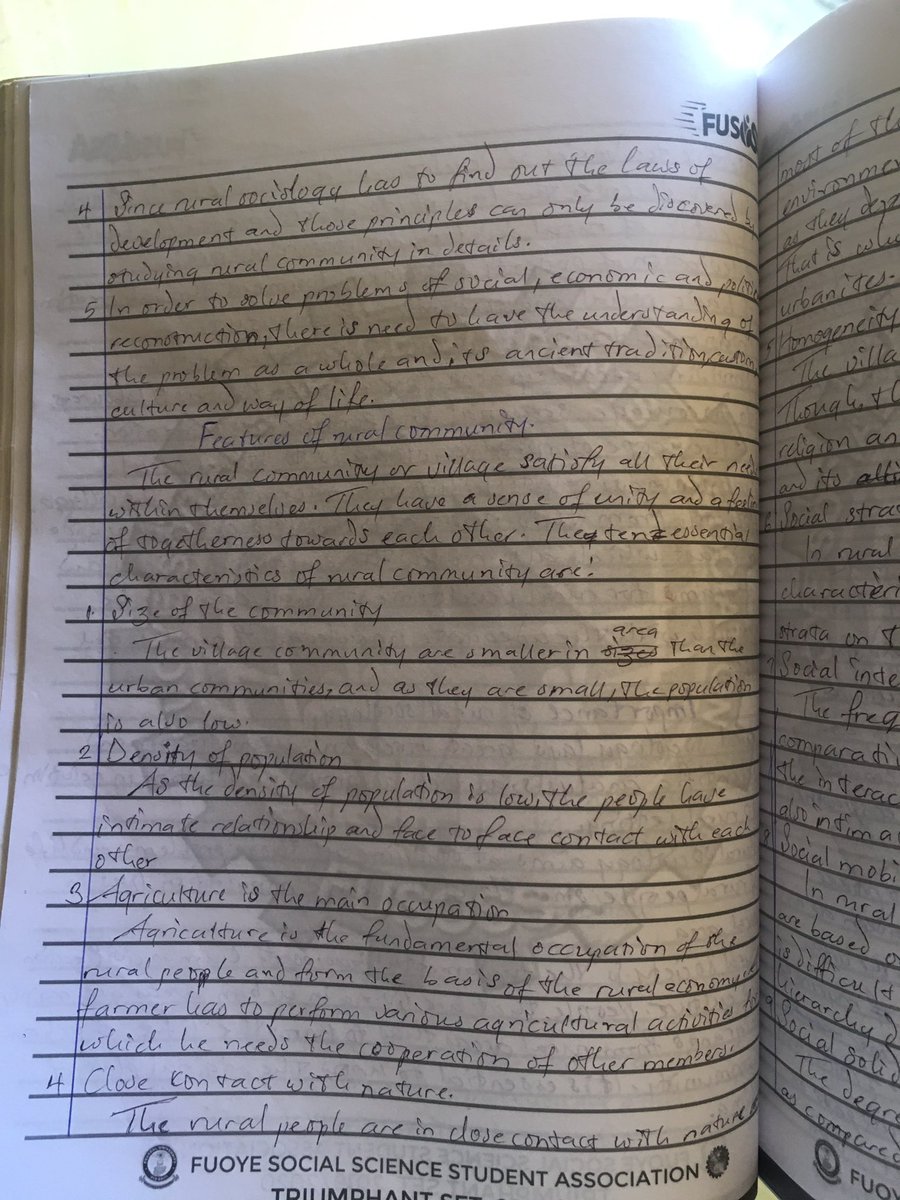 FUS
4 Since rural sociology has to find out the laws of
development and those principles can only be discovered
studying rural community in details.
5 In order to solve problems of social, economic and
reconstruction, there is need to have the understanding of
the problem as a whole and its ancient tradition, custom
culture and way of life.
Features of rural community.
The rural community or village satisfy all their
within themselves. They have a sense of unity and a
of togetherness towards each other. The ten essential
characteristics of rural community are:
1. Size of the community
The village community are smaller in area than the
urban communities, and as they are small, the population
is also low.
2 Density of population
As the density of population is low, the people have
intimate relationship and face to face contact with each
other
3 Agriculture is the main occupation
Agriculture is the fundamental occupation of the
rural people and form the basis of the rural economy
farmer has to perform various agricultural activities
which he needs the cooperation of other members.
4 Close Kontact with nature.
The rural people are in close contact with nature
FUOYE SOCIAL SCIENCE STUDENT ASSOCIATION
TRIUMPHANT SET
most of
as they
That is
urbanites.
Homogeneity
The
Though,
religion
and its
Social
In rural
strata on
Social
The
the
also
Social
In rural
are based
is difficult
hierarchy
Social
The
as compared